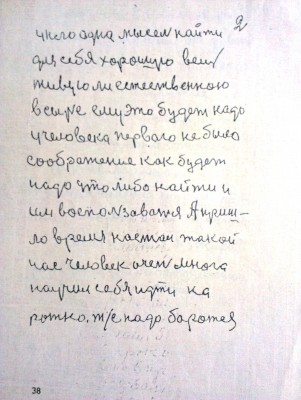 2
у него одна мысел найти
для себя хорошую вещ
живую ли естественною
всыре ему это будет надо
у человека первого не было
соображение как будет
надо что либо найти и
им восползаватя А приш-
ло время настал такой
час человек очен многа
научил себя идти ка
ротко. т/с надо боротея
38